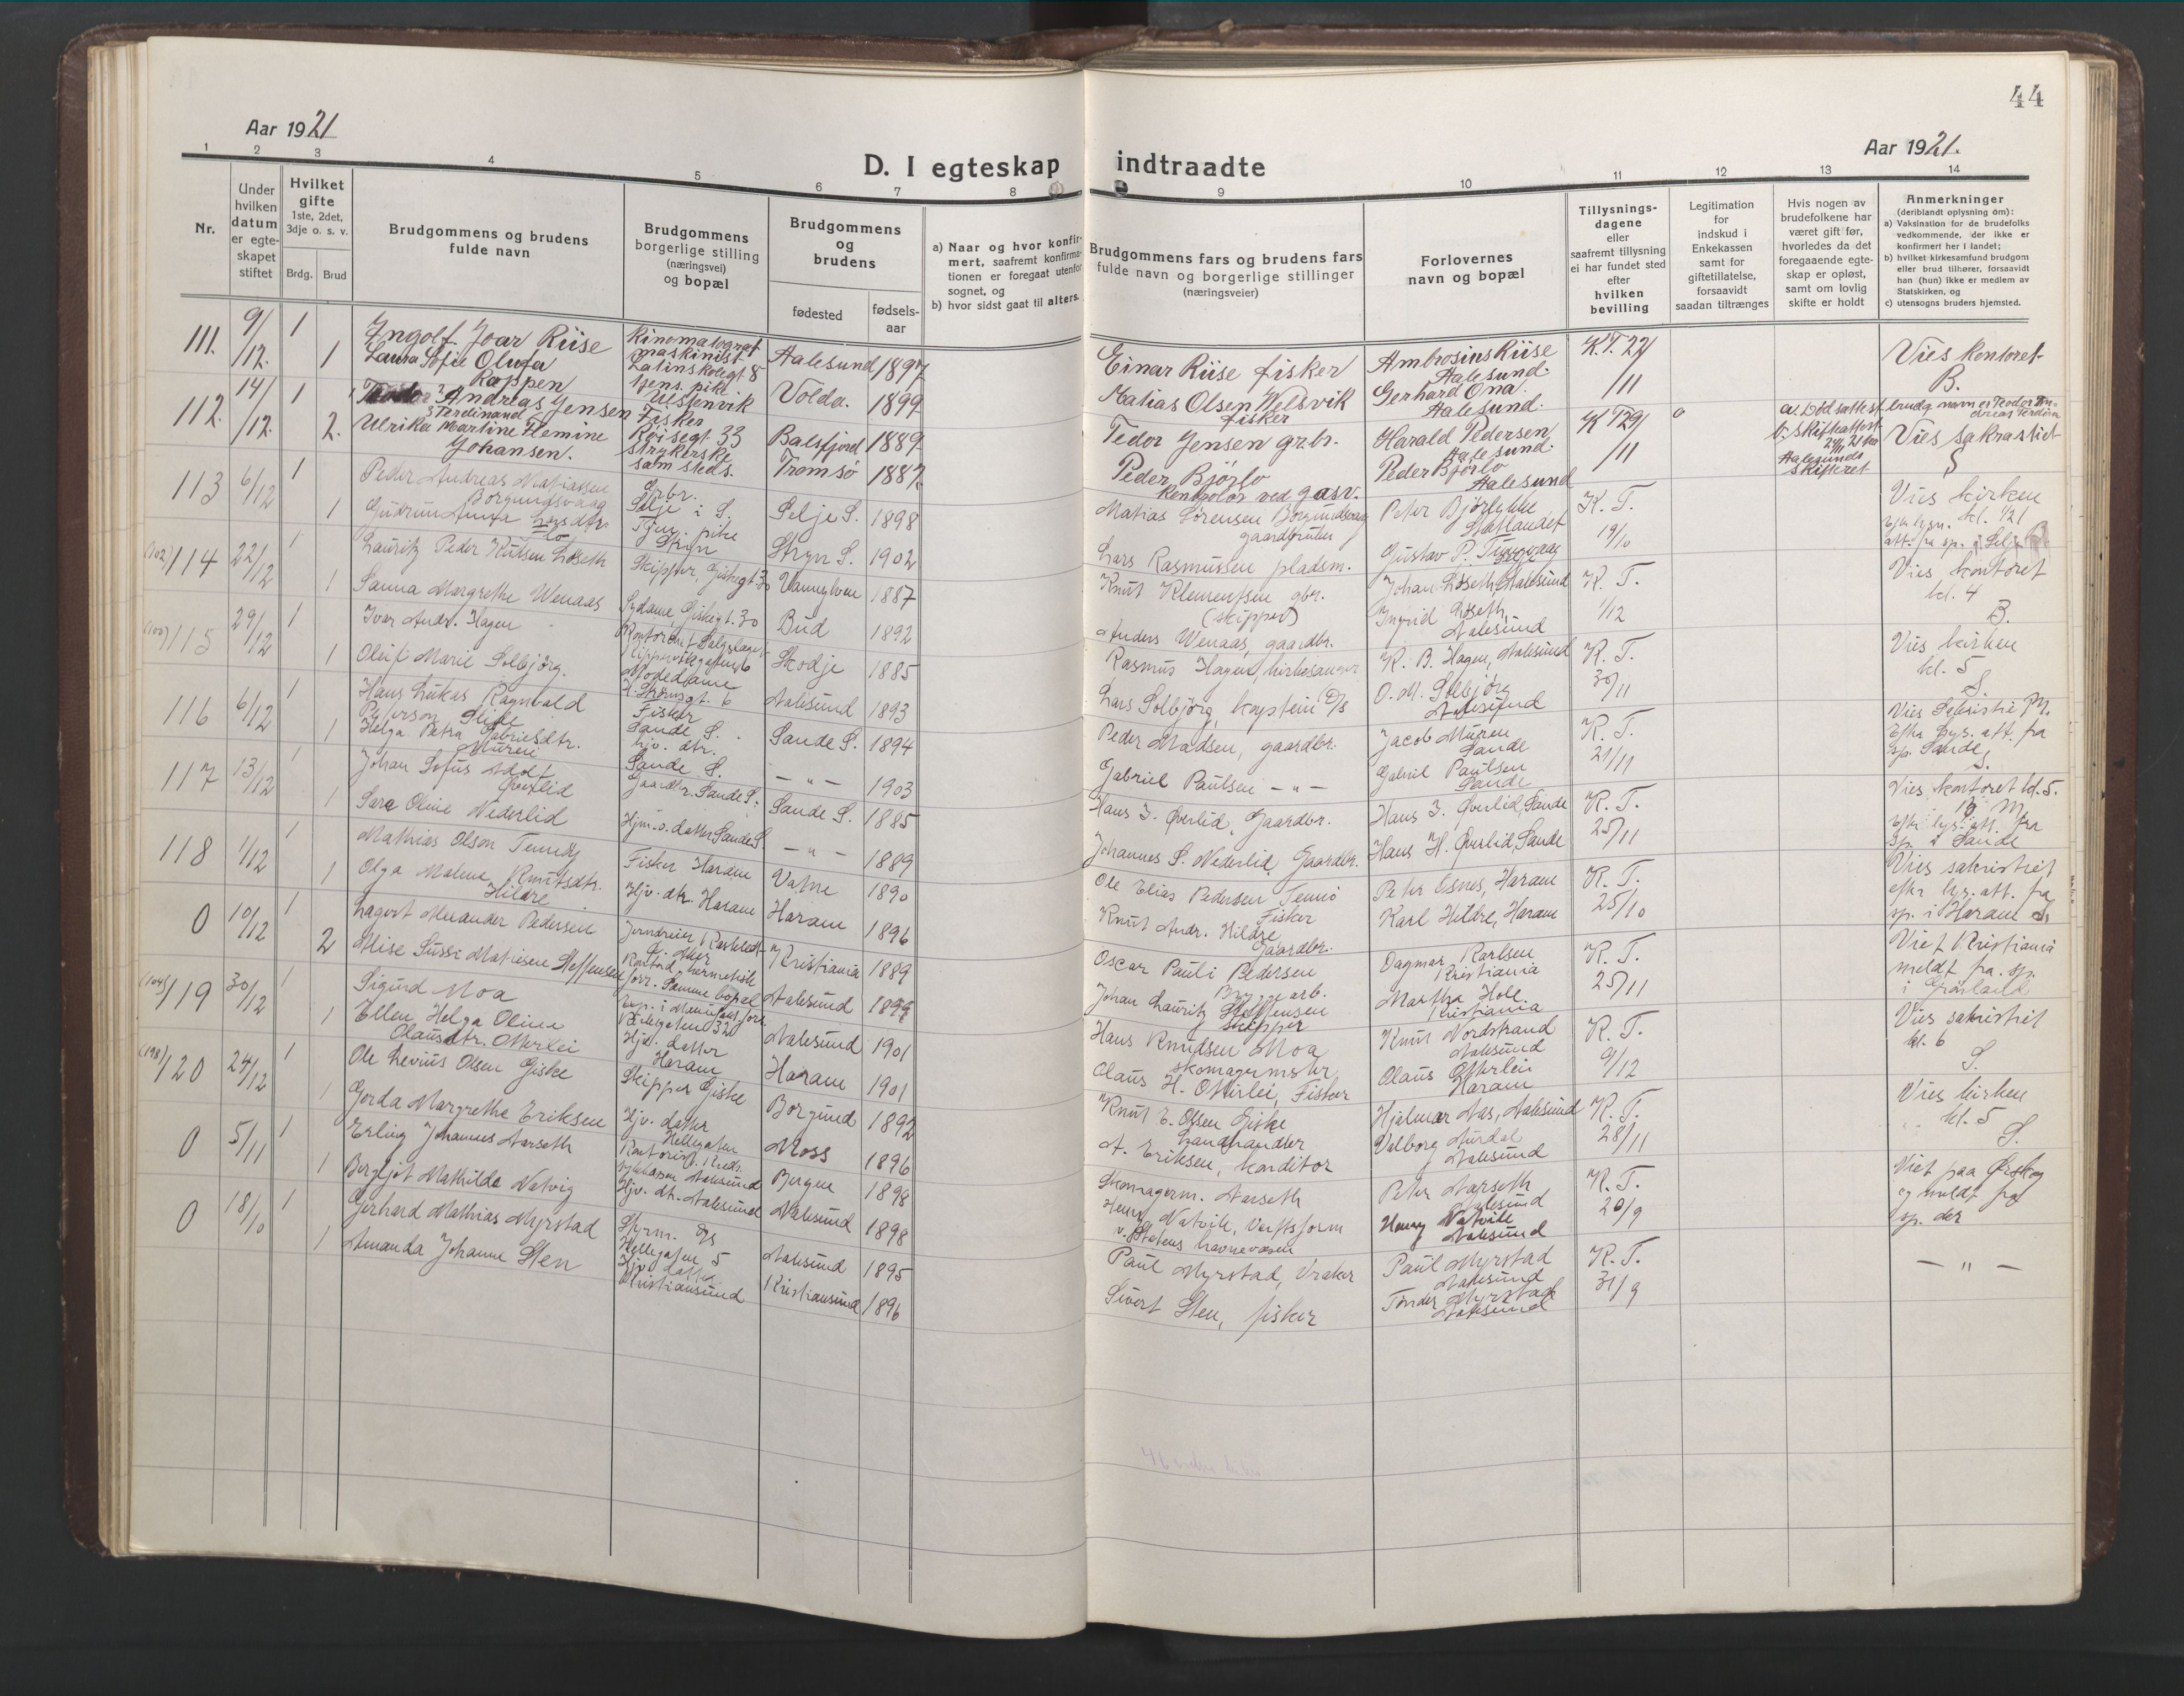 44
Aar 1921
Aar 1921.
D. I egteskap indtraadte
1 2 3 4 5 6 7 8 9 10 11 12 13 14
Nr.
Under hvilken datum er egte-skapet stiftet
Hvilket gifte
1ste, 2det, 3dje o. s. v.
Brdg. Brud
Brudgommens og brudens
fulde navn
Brudgommens
borgerlige stilling
(næringsvei)
og bopæl
Brudgommens
og
brudens
fødested
fødsels-
aar
a) Naar og hvor konfir-
mert, saafremt konfirma-
tionen er foregaat utenfor
sognet, og
b) hvor sidst gaat til alters.
Brudgommens fars og brudens fars
fulde navn og borgerlige stillinger
(næringsveier)
Forlovernes
navn og bopæl
Tillysnings-
dagene
eller
saafremt tillysning
ei har fundet sted
efter
hvilken
bevilling
Legitimation
for
indskud i
Enkekassen
samt for
giftetillatelse,
forsaavidt
saadan tiltrænges
Hvis nogen av
brudefolkene har
været gift før,
hvorledes da det
foregaaende egte-
skap er opløst,
samt om lovlig
skifte er holdt
Anmerkninger
(deriblandt oplysning om):
a) Vaksination for de brudefolks
vedkommende, der ikke er
konfirmert her i landet;
b) hvilket kirkesamfund brudgom
eller brud tilhører, forsaavidt
han (hun) ikke er medlem av
Statskirken, og
c) utensogns bruders hjemsted.
111. 9/12. 1 Ingolf Joar Riise Kinomatograf maskinist Latinskolegt. 8 Aalesund 1897 Einar Riise fisker Ambrosius Riise Aalesund. K.T. 22/11 Vies kontoret B.
1 Laura Sofie Olufa Rappen tjens. pike Volda. 1899 Matias Olsen Welsvik fisker Gerhard Ona. Aalesund.
112. 14/12. 1 Andreas Ferdinand Jensen Fisker Røisegt 33 Balsfjord 1889 Tedor Jensen grbr. Harald Pedersen Aalesund. K T 29/11 0 a. Dødsattest b. Skifteattest Aalesunds Skifteret Vies sakrastiet S
2. Ulrika Martine Flemine Johansen. Strykerske sam steds. Tromsø 1887 Peder Bjørlo Kontrolør ved gasv. Peder Bjørlo Aalesund
113 6/12 1 Peder Andreas Matiassen Borgundsvaag Grbr. Selje i S. Selje S. 1898 Matias Sørensen Borgundsvaag gaardbruker Peter Björlykke Statlandet K. T. 19/10 Vies kirken
1 Gudrun Anna Larsdtr. Tjen. pike Stryn Stryn S. 1902 Lars Rasmussen pladsm. Gustav P.
(102) 114 22/12 1 Lauritz Peder Knutsen Løseth Skipper, Giskegt. 30 Vannylven 1887 Knut Klementsen gbr. (skipper) Johan Løseth, Aalesund K. T. 1/12 Vies kontoret kl. 4 B.
1 Sanna Margrethe Wenaas Sydame Giskegt. 30 Bud 1892 Anders Wenaas, gaardbr. Ingrid Løseth, Aalesund
115 29/12 1 Ivar Andr. Hagen Skodje 1885 Rasmus Hagen, kirkesanger K. B. Hagen, Aalesund K. T. 30/11 Vies kirken kl. 5 S.
1 Olufi Marie Solbjørg. Modedame Aalesund 1893 Lars Solbjörg, kaptein D/S O. M. Solbjörg Aalesund
116 6/12 1 Hans Lukas Ragnvald Pederson Fisker Sande S. Sande S. 1894 Peder Madsen, gaardbr. Jacob Muren Sande K. T. 21/11 Vies Sakristie M. Efter lys. att. fra sp. Sande S.
1 Helga Petra Gabrielsdtr. Muren hjv. dtr. Sande S. — " — 1903 Gabriel Paulsen — " — Gabriel Paulsen Sande
117 13/12 1 Johan Sofus Adolf Øverlid Gaardbr. Sande S. Sande S. 1885 Hans J. Øverlid, Gaardbr. Hans J. Øverlid, Sande K. T. 25/11 Vies kontoret kl. 5. B. M. Efter lys. att. fra sp. i Sande
1 Sara Oline Nederlid Hjm. v. datter Sande S. — " — 1889 Johannes S. Nederlid Gaardbr. Hans H. Øverlid, Sande
118 1/12 1 Mathias Olson Tennöy Fisker Haram Vatne 1890 Ole Elias Pedersen Tennö Fisker Peter Esnes, Haram K. T. 25/10 Vies sakristiet efter lys. att. fra sp. i Haram S.
1 Olga Malene Knutsdtr. Hildre Hjv. dtr. Haram Haram 1896 Knut Andr. Hildre Gaardbr. Karl Hildre, Haram
0 10/12 1 Lagert Meander Pedersen Jerndreier Kristiania 1889 Oscar Pauli Pedersen Dagmar Karlsen Kristiania K. T. 25/11 Viet Kristiania meldt fra sp. i Grönland
2 Mise Sussi Matiesen Steffensen Aalesund 1899 Johan Lauritz Steffensen Skipper Martha Holl. Kristiania
(104) 119 30/12 1 Sigurd Moa Aalesund 1901 Hans Knudsen Moa skomagermstr. Knut Nordstrand Aalesund K. T. 9/12 Vies sakristiet kl. 6 S.
1 Ellen Helga Oline Olausdtr. Otterlei Hjv. datter Haram Haram 1901 Olaus H. Otterlei, Fisker Olaus Otterlei Haram
(198) 120 24/12 1 Ole Levius Olsen Giske Skipper Giske Borgund 1892 Knut E. Olsen Giske Landhandler Hjalmar Aas, Aalesund K. T. 28/11 Vies kirken kl. 5 S.
1 Gerda Margrethe Eriksen Hjv. datter Hellegaten Moss 1896 A. Eriksen, konditor Valborg Aurdal Aalesund
0 5/11 1 Erling Johannes Aarseth Aalesund Bergen 1898 Skomagerm. Aarseth Peter Aarseth Aalesund K. T. 20/9 Viet paa Ørskog og meldt fra sp. der
1 Bergljot Mathilde Natvig Hjv. dtr. Aalesund Aalesund 1898 v. Statens havnevæsen Aalesund
0 18/10 1 Gerhard Mathias Myrstad Styrm. D/S Hellegaten 5 Aalesund 1895 Paul Myrstad, Vraker Paul Myrstad Aalesund K. T. 31/9 — " —
1 Amanda Johanne Sten Hjv. datter Kristiansund Kristiansund 1896 Sivert Sten, fisker Myrstad Aalesund